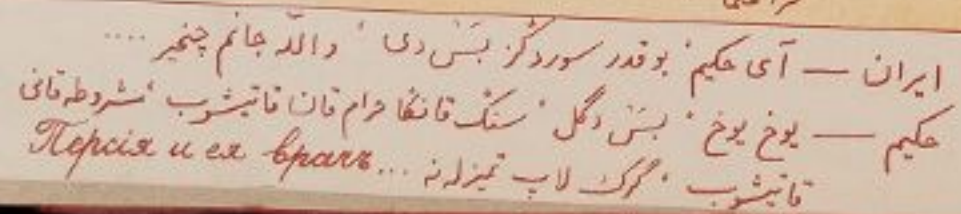 ایران — آی حکیم٬ بوقدر سوردگز بسّ دی٬ والله جانم چیخیر ....
حکیم — یوخ یوخ٬ بسّ دگل٬ سنک قانکا حرام قان قاتیشوب٬ مشروطه قانی
قاتیشوب٬ گرک لاپ تمیزلەنە ...
Персія и ея врачъ